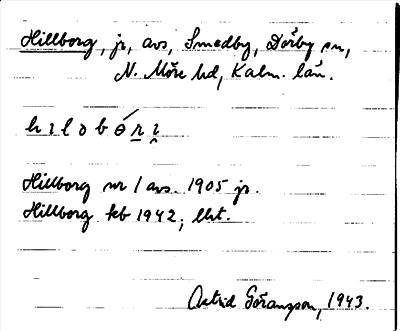 Hillborg, jr, avs, Smedby, Dörby sn,
N. Möre hd, Kalm. län.
Hillborg nr 1 avs. 1905 jr.
Hillborg kb 1942; lht.
Astrid Göransson, 1943.